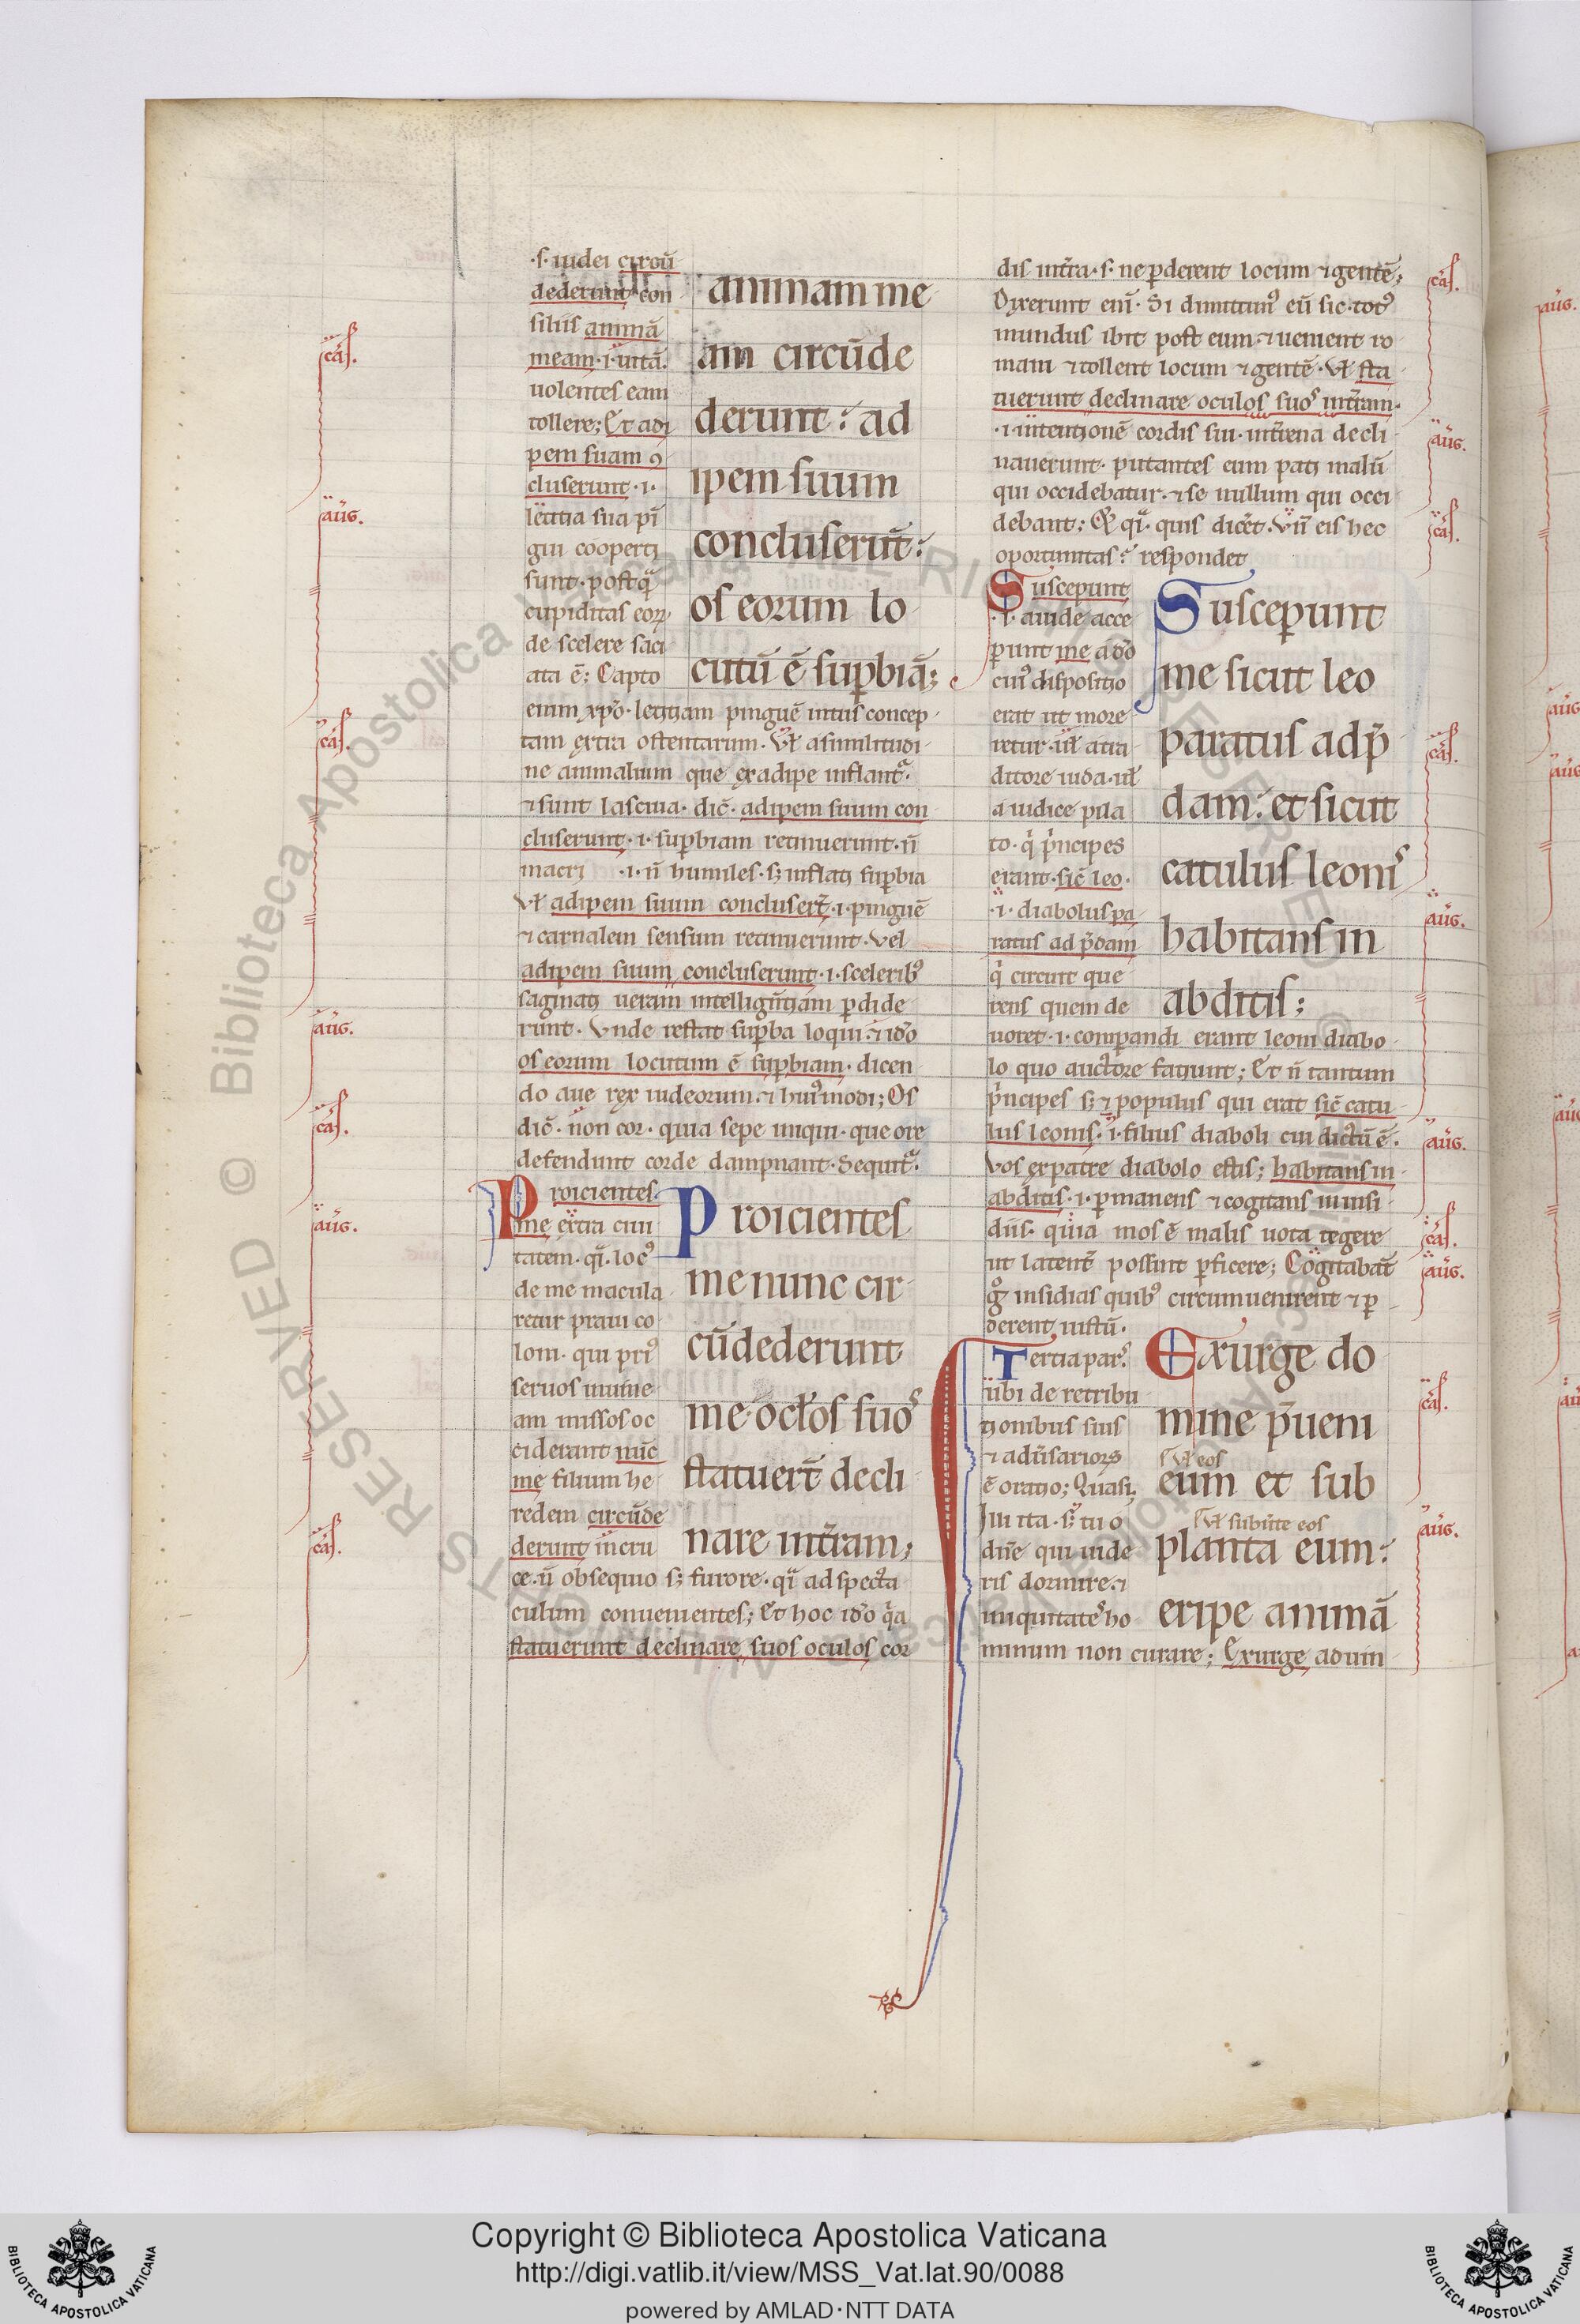 ·s· iudei circū
dederunt con
siliis animā
meam ·i· uitā.
uolentes eam
tollere; Et adi
pem suam ꝯ
cluserunt ·i·
letitia sua pī
gui cooperti
sunt· postqᷓ
cupiditas eoꝝ
de scelere saci
ata ē; Capto
animam me
am circūde
derunt: ad
ipem suum
concluserūt:
os eorum lo
cutū ē suꝑbiā;
enim xp̄o· letitiam pinguē intus concep
tam extra ostentarunt. Vl̄ a similitudi
ne animalium que ex adipe inflantᷓ·
⁊ sunt lasciua· dic̄· adipem suum con
cluserunt ·i· suꝑbiam retinuerunt· n̄
macri ·i· n̄ humiles· sꝫ inflati suꝑbia
Vl̄ adipem suum concluser̄t ·i· pinguē
⁊ carnalem sensum retinuerunt· Vel
adipem suum concluserunt ·i· sceleribꝰ
saginati ueram intelligen̄tiam ꝑdide
runt· Vnde restat suꝑba loqui· ⁊ id̄o
os eorum locutum ē suꝑbiam· dicen
do aue rex iudeorum· ⁊ huiꝰmodi; Os
dic̄· non cor· quia sepe iniqui· que ore
defendunt corde dampnant· Sequitᷓ·
Proicientes
me extra ciui
tatem· qī· locꝰ
de me macula
retur praui co
loni· qui priꝰ
seruos uinee
am missos oc
ciderant nūc
me filium he
redem circūde
derunt in cru
Proicientes
me nunc cir
cūdederunt
me· oc̄los suoˢ
statuer̄t decli
nare in t̄ram;
ce· n̄ obsequio sꝫ furore· qī ad specta
culum conuenientes; Et hoc id̄o qᷓa
statuerunt declinare suos oculos cor
dis in t̄ra· s· ne ꝑderent locum ⁊ gentē;
Dixerunt enī· Si dimittimꝰ eū sic· totꝰ
mundus ibit post eum· ⁊ uenient ro
mani ⁊ tollent locum ⁊ gentē· Vl̄ sta
tuerunt declinare oculos suoˢ in t̄ram·
·i· intentionē cordis sui· in t̄rena decli
nauerunt· putantes eum pati malū
qui occidebatur· ⁊ se nullum qui occi
debant: Qᷓ qī· quis dicēt· Vn̄ eis hec
oportunitas? respondet
Susceperunt
·i· auide acce
ꝑunt me a d̄o
cuiꝰ dispositio
erat ut more
retur· ul̄ a tra
ditore iuda· ul̄
a iudice pila
to· qⁱ pⁱncipes
erant· sic̄ leo·
·i· diabolus pa
ratus ad p̄dam
qⁱ circuit que
rens quem de
Susceꝑunt
me sicut leo
paratus ad p̄
dam: et sicut
catulus leoniˢ
habitans in
abditis;
uoret ·i· comꝑandi erant leoni diabo
lo quo auctore faciunt; Et n̄ tantum
pⁱncipes sꝫ ⁊ populus qui erat sic̄ catu
lus leonis· ·i· filius diaboli cui dictū ē·
Vos ex patre diabolo estis; habitans in
abditis ·i· ꝑmanens ⁊ cogitans in insi
diis· quia mos ē malis uota tegere
ut latent̄ possint ꝑficere; Cogitabāt
gͦ insidias quibꝰ circumuenirent ⁊ ꝑ
derent iustū·
Tertia parˢ·
ubi de retribu
tionibus suis
⁊ adūsarioꝝ
ē oratio; Quasi
illi ita· sꝫ tu o
dn̄e qui uide
ris dormire· ⁊
iniquitateˢ ho
Exurge do
mine p̄ueni
Vl̄ eos
eum et sub
Vl̄ subūte eos
planta eum:
eripe animā
minum non curare; Exurge ad uin
cas.
aug.
cas.
aug.
cas.
aug.
cas.
cas.
aug.
cas.
cas.
aug.
aug.
cas.
aug.
cas.
aug.
Copyright © Biblioteca Apostolica Vaticana
http://digi.vatlib.it/view/MSS_Vat.lat.90/0088
powered by AMLAD·NTT DATA
BIBLIOTECA APOSTOLICA VATICANA
BIBLIOTECA APOSTOLICA VATICANA